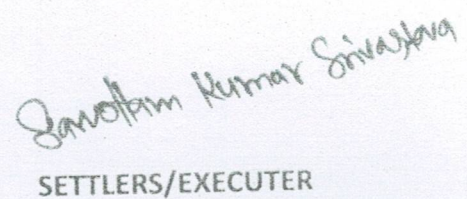 Sarvottam Kumar Srivastava
SETTLERS/EXECUTER